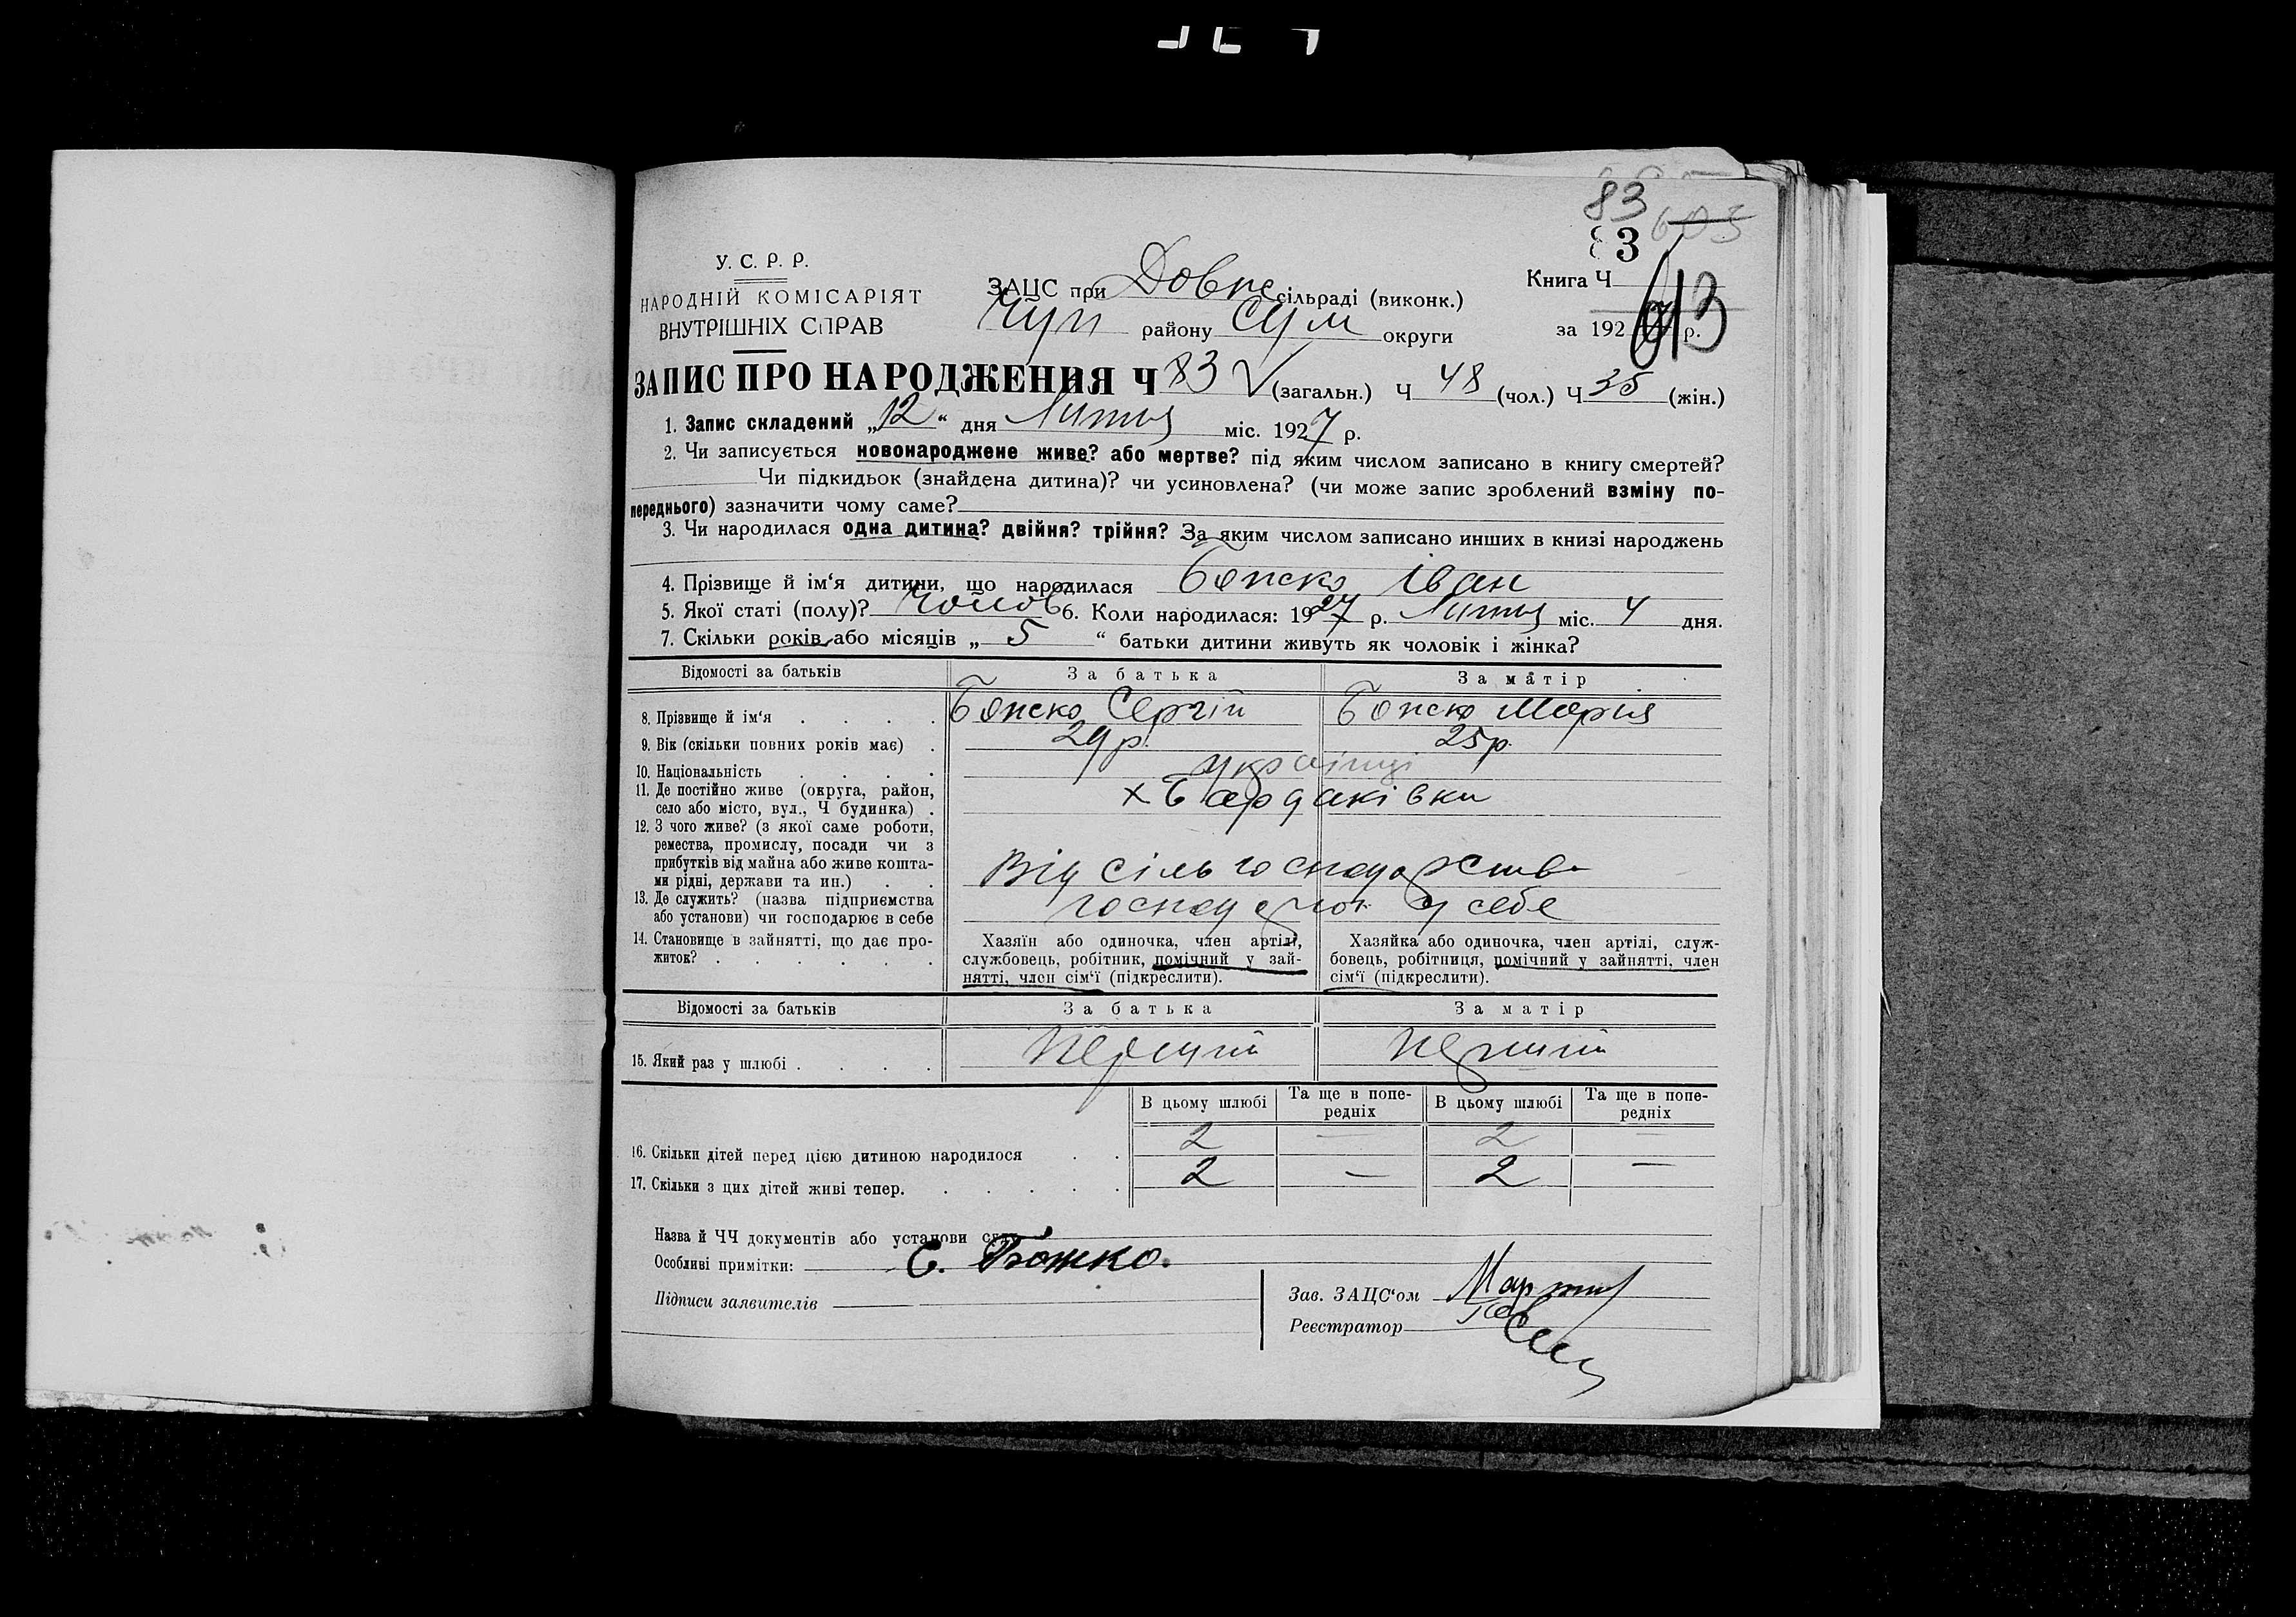 83
603
83
У. С. Р. Р.
НАРОДНІЙ КОМІСАРІЯТ
ВНУТРІШНІХ СПРАВ
ЗАЦС при Довж сільраді (виконк.)
Чуп району Сум округи
Книга Ч
613
за 192 р.
ЗАПИС ПРО НАРОДЖЕННЯ Ч 83 (загальн.) Ч 48 (чол.) Ч 35 (жін.)
1. Запис складений „12“ дня Лютня міс. 1927 р.
2. Чи записується новонароджене живе? або мертве? під яким числом записано в книгу смертей?
Чи підкидьок (знайдена дитина)? чи усиновлена? (чи може запис зроблений взміну по-
переднього) зазначити чому саме?
3. Чи народилася одна дитина? двійня? трійня? За яким числом записано инших в книзі народжень
4. Прізвище й ім‘я дитини, що народилася Божко Іван
5. Якої статі (полу)? чолов 6. Коли народилася: 1927 р. Лютня міс. 4 дня.
7. Скільки років або місяців „ 5 “ батьки дитини живуть як чоловік і жінка?
Відомості за батьків За батька За матір
8. Прізвище й ім‘я Божко Сергій Божко Мария
9. Вік (скільки повних років має) 29 р. 25 р.
10. Національність українці
11. Де постійно живе (округа, район,
село або місто, вул., Ч будинка) х Бардаківки
12. З чого живе? (з якої саме роботи,
ремества, промислу, посади чи з
прибутків від майна або живе кошта-
ми рідні, держави та ин.) Від сільгосподарства
13. Де служить? (назва підприємства
або установи) чи господарює в себе господарют у себе
14. Становище в зайнятті, що дає про-
житок?
Хазяїн або одиночка, член артілі,
службовець, робітник, помічний у зай-
нятті, член сім‘ї (підкреслити).
Хазяйка або одиночка, член артілі, служ-
бовець, робітниця, помічний у зайнятті, член
сім‘ї (підкреслити).
Відомості за батьків За батька За матір
15. Який раз у шлюбі Перший Перший
В цьому шлюбі Та ще в попе-
редніх В цьому шлюбі Та ще в попе-
редніх
16. Скільки дітей перед цією дитиною народилося 2 — 2 —
17. Скільки з цих дітей живі тепер. 2 — 2 —
Назва й ЧЧ документів або установи суду
Особливі примітки: С. Божко.
Підписи заявителів
Зав. ЗАЦС‘ом
Реєстратор